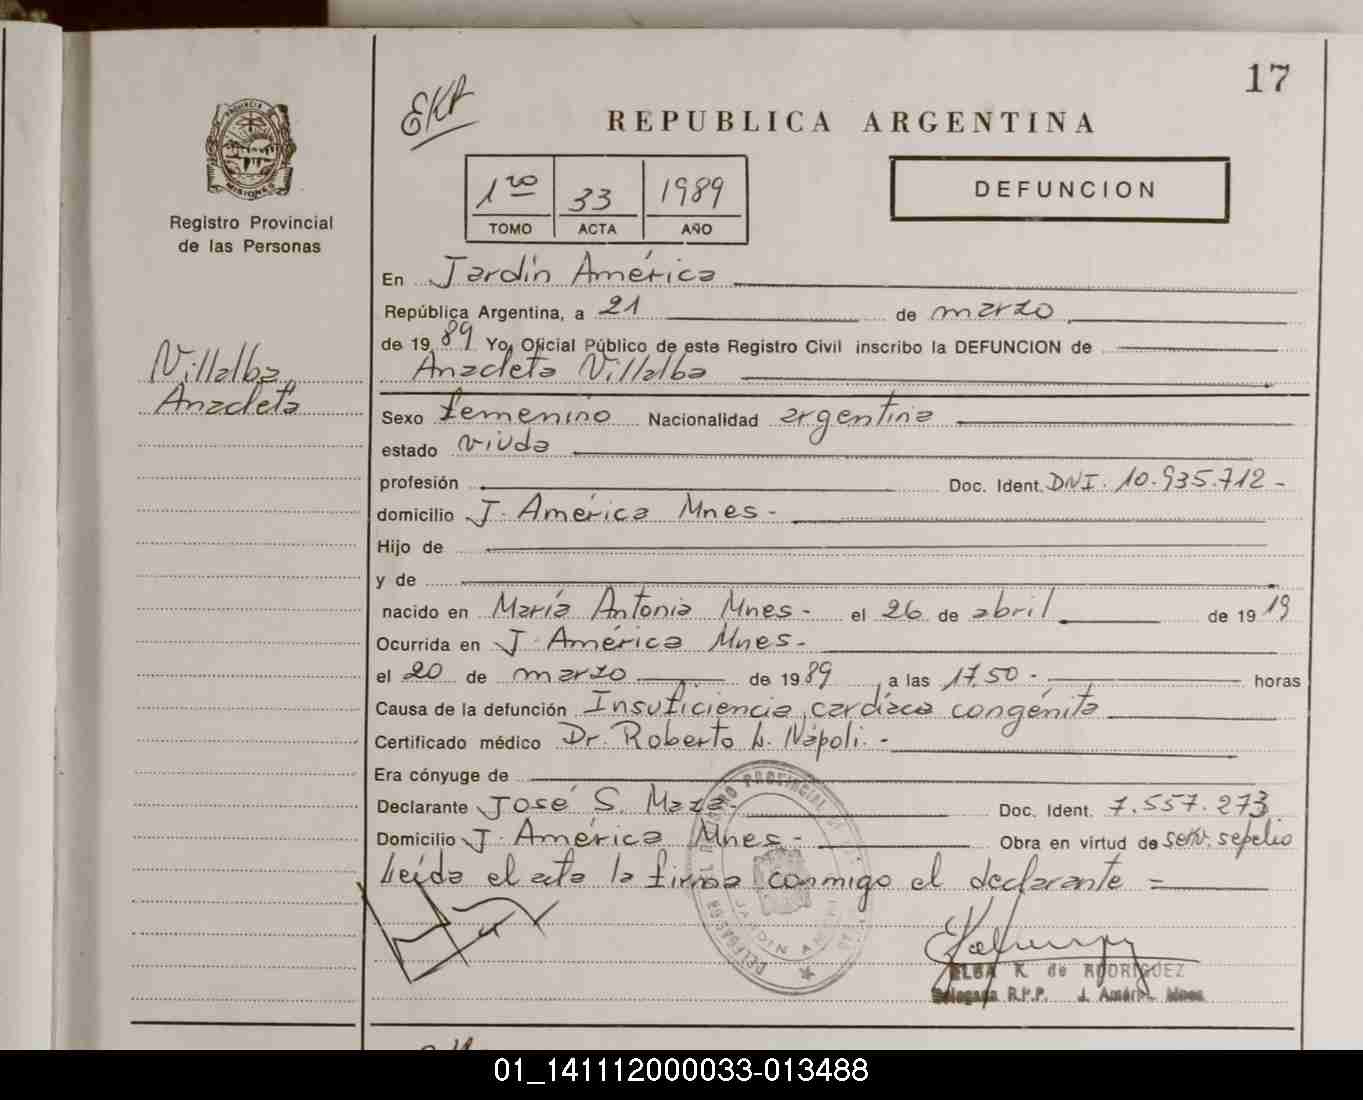 17
EKR
REPUBLICA ARGENTINA
PROVINCIA DE MISIONES
Registro Provincial
de las Personas
1ro 33 1989
TOMO ACTA AÑO
DEFUNCION
En Jardín América
República Argentina, a 21 de marzo
de 1989 Yo, Oficial Público de este Registro Civil inscribo la DEFUNCION de
Anacleta Villalba
Villalba,
Anacleta
Sexo femenino Nacionalidad argentina
estado viuda
profesión Doc. Ident. DNI. 10.935.712 -
domicilio J. América Mnes -
Hijo de
y de
nacido en María Antonia Mnes - el 26 de abril de 1919
Ocurrida en J. América Mnes -
el 20 de marzo de 1989 a las 17,50 - horas
Causa de la defunción Insuficiencia cardíaca congénita
Certificado médico Dr. Roberto L. Nápoli. -
Era cónyuge de
Declarante José S. Maza - Doc. Ident. 7.557.273
Domicilio J. América Mnes - Obra en virtud de serv. sepelio
Leída el acta la firma conmigo el declarante =
ELBA K. de RODRIGUEZ
Delegada R.P.P. J. Améric. Mnes.
01_141112000033-013488